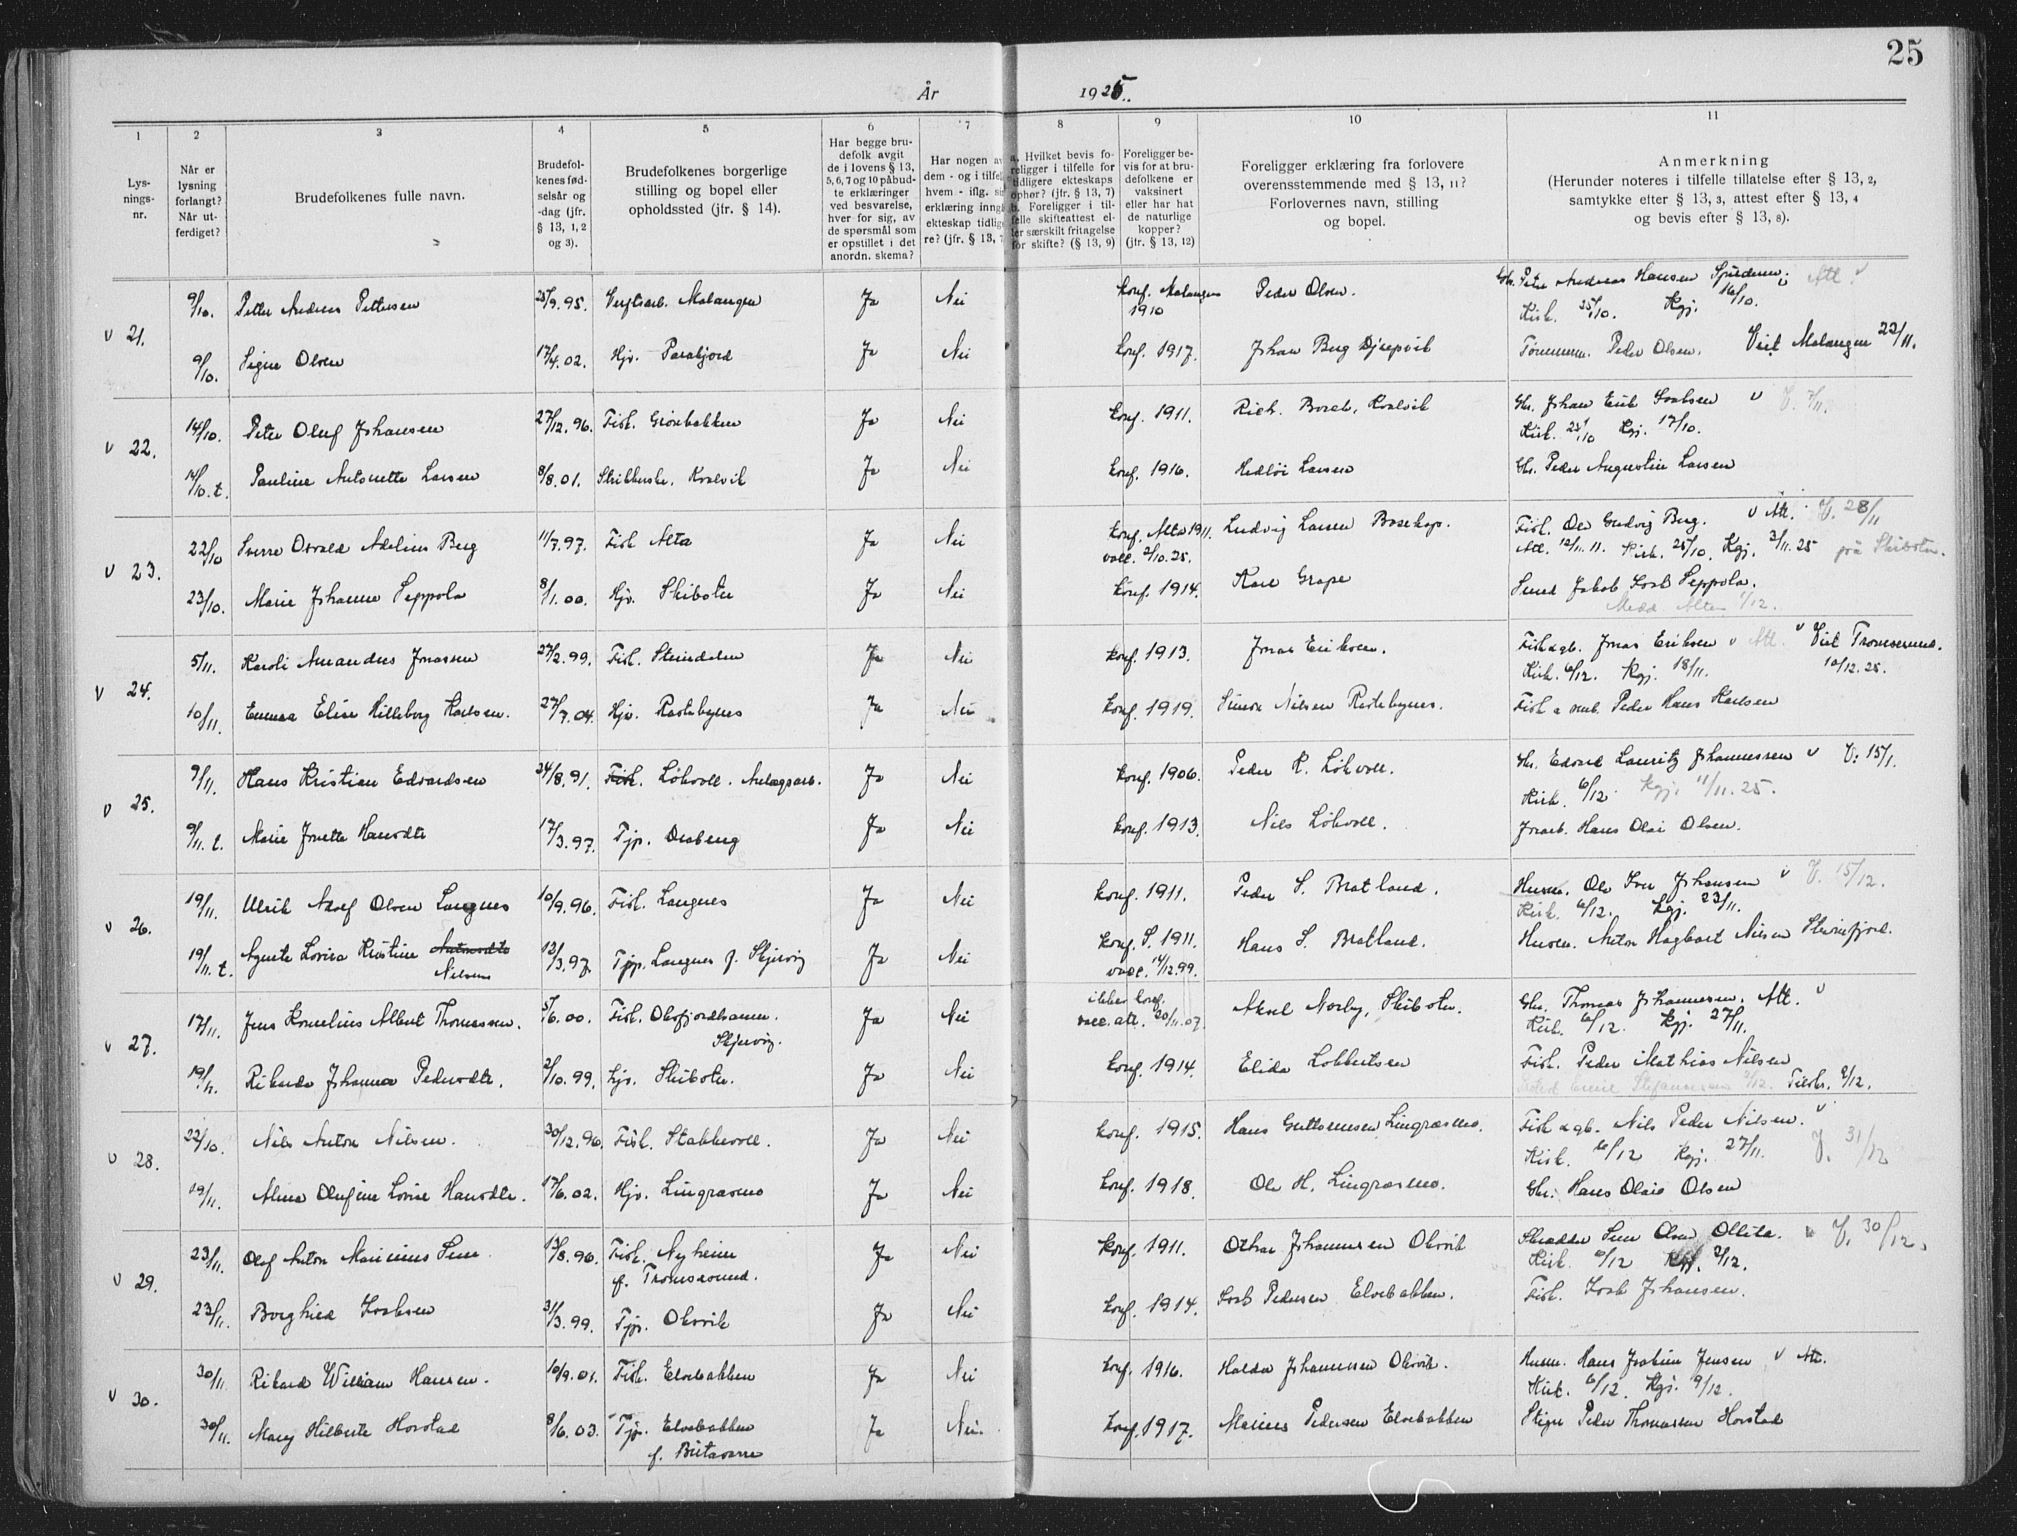 25
År 1925.
1 2 3 4 5 6 7 8 9 10 11
Lys-
nings-
nr.
Når er
lysning
forlangt?
Når ut-
ferdiget?
Brudefolkenes fulle navn.
Brudefol-
kenes fød-
selsår og
-dag (jfr.
§ 13, 1, 2
og 3).
Brudefolkenes borgerlige
stilling og bopel eller
opholdssted (jfr. § 14).
Har begge bru-
defolk avgit
de i lovens § 13,
5, 6, 7 og 10 påbud-
te erklæringer
ved besvarelse,
hver for sig, av
de spørsmål som
er opstillet i det
anordn. skema?
Har nogen av
dem - og i tilfel
hvem - iflg. si
erklæring inngå
ekteskap tidlige
re? (jfr. § 13, 7
a. Hvilket bevis fo-
religger i tilfelle for
tidligere ekteskaps
ophør? (jfr. § 13, 7)
b. Foreligger i til-
felle skifteattest el-
ler særskilt fritagelse
for skifte? (§ 13, 9)
Foreligger be-
vis for at bru-
defolkene er
vaksinert
eller har hat
de naturlige
kopper?
(jfr. § 13, 12)
Foreligger erklæring fra forlovere
overensstemmende med § 13, 11?
Forlovernes navn, stilling
og bopel.
Anmerkning
(Herunder noteres i tilfelle tillatelse efter § 13, 2,
samtykke efter § 13, 3, attest efter § 13, 4
og bevis efter § 13, 8).
v 21. 9/10. Petter Andreas Pettersen 25/9.95. Malangen Ja Nei konf. Malangen 1910 Peder Olsen. Gbr. Peter Andreas Hansen
Kirk. 25/10. Kgj. 16/10.
9/10. Signe Olsen 17/4.02. Hjv. Ja Nei konf. 1917. Johan Berg Peder Olsen. Viet Malangen 22/11.
v 22. 14/10. Peter Oluf Johansen 27/12.96. Fisk. Grønbakken Ja Nei konf. 1911. Kvalvik Gbr. Johan Erik Isaksen v V. 7/11.
Kirk. 25/10 Kgj. 17/10.
14/10.t. Pauline Antonette Larsen 8/8.01. Kvalvik Ja Nei konf. 1916. Larsen Gbr. Peder Augustin Larsen
v 23. 22/10 Sverre Osvald Adelius Berg 11/7.97. Fisk Alta Ja Nei konf. Alta 1911. vacc. 2/10.25. Ludvig Larsen Bosekop. Fisk. Ole Ludvig Berg. v Att. V. 28/11
Att. 12/11.11. Kirk. 25/10. Kgj. 3/11.25 på Skibotn.
23/10. Marie Johanna Seppola 8/1.00. Hjv. Skibotn Ja Nei konf. 1914. Karl Grape Smed Jakob Isak Seppola.
Medd Alten 1/12.
v 24. 5/11. Karoli Amandus Jonassen 27/2.99. Fisk. Steindalen Ja Nei konf. 1913. Jonas Eriksen. Fisk & gb. Jonas Eriksen v Att. v Viet Tromsøsund.
Kirk. 6/12. Kgj. 18/11. 10/12.25.
10/11. Emma Elise Hilleborg Karlsen. 27/7.04. Hjv. Rastebynes Ja Nei konf. 1919. Simon Nilsen Rastebynes. Peder Hans Karlsen
v 25. 7/11. Hans Kristian Edvardsen 24/8.91. Fisk. Løkvoll. Anlægsarb. Ja Nei konf. 1906. Peder K. Løkvoll. Gbr. Edvard Lauritz Johannessen v V. 15/1.
Kirk. 6/12. Kgj. 11/11.25.
9/11.t. Marie Jonetta Hansdtr 17/3.97. Tjp. Ja Nei konf. 1913. Nils Løkvoll. Hans Olai Olsen.
v 26. 19/11. Ulrik Adolf Olsen Langnes 10/9.96. Fisk. Langnes Ja Nei konf. 1911. Peder S. Bratland. Ole Johansen v V. 15/12.
Kirk. 6/12. Kgj. 23/11.
19/11.t. Agnete Lovisa Kristine Antonsdtr 13/3.97. Tjp. Langnes f. Skjervøy Ja Nei konf. S. 1911. Hans S. Bratland. Anton Hagbart Nilsen
Nilsen vacc. 14/12.99.
v 27. 17/11. Jens Kornelius Albert Thomassen. 5/6.00. Fisk. Oksfjordhamn. Skjervøy. Ja Nei ikke konf. vacc. att. 20/11.07. Aksel Norby, Skibotn. Gbr. Thomas Johannessen. Att. v
Kirk. 6/12. Kgj. 27/11.
19/11. Rikarda Johanna Pedersdtr. 2/10.99. Hjv. Skibotn. Ja Nei konf. 1914. Elida Lobbertsen Fisk. Peder Mathias Nilsen
v 28. 22/10. Nils Anton Nilsen. 30/12.96. Fisk. Stabbevoll. Ja Nei konf. 1915. Hans Guttormsen Lingrasmo. Fisk & gb. Nils Peder Nilsen. v
Kirk. 6/12 Kgj. 27/11. V. 31/12
19/11. Alma Olufine Lovise Hansdtr. 17/6.02. Hjv. Lingrasmo Ja Nei konf. 1918. Ole H. Lingrasmo. Gbr. Hans Olaie Olsen
v 29. 23/11. Olaf Anton Marinius Sein 13/8.96. Fisk. Nyheim f. Tromsøsund. Ja Nei konf. 1911. Othar Johannesen Olsvik Skredder Olsen V. 30/12.
Kirk. 6/12 Kgj. 2/12.
23/11. Borghild Isaksen 31/3.99. Tjp. Olsvik Ja Nei konf. 1914. Isak Pedersen Elvebakken. Fisk. Isak Johansen.
v 30. 30/11. Rikard William Hansen. 10/9.01. Fisk. Elvebakken Ja Nei konf. 1916. Haldor Johannesen Olsvik. Hans Joakim Jensen v Att.
Kirk. 6/12. Kgj. 9/12.
30/11. Mary Hilberte Horstad 8/6.03. Tjp. Elvebakken f. Birtavarre Ja Nei. konf. 1917. Marius Pedersen Elvebakken Peder Thomassen Horstad